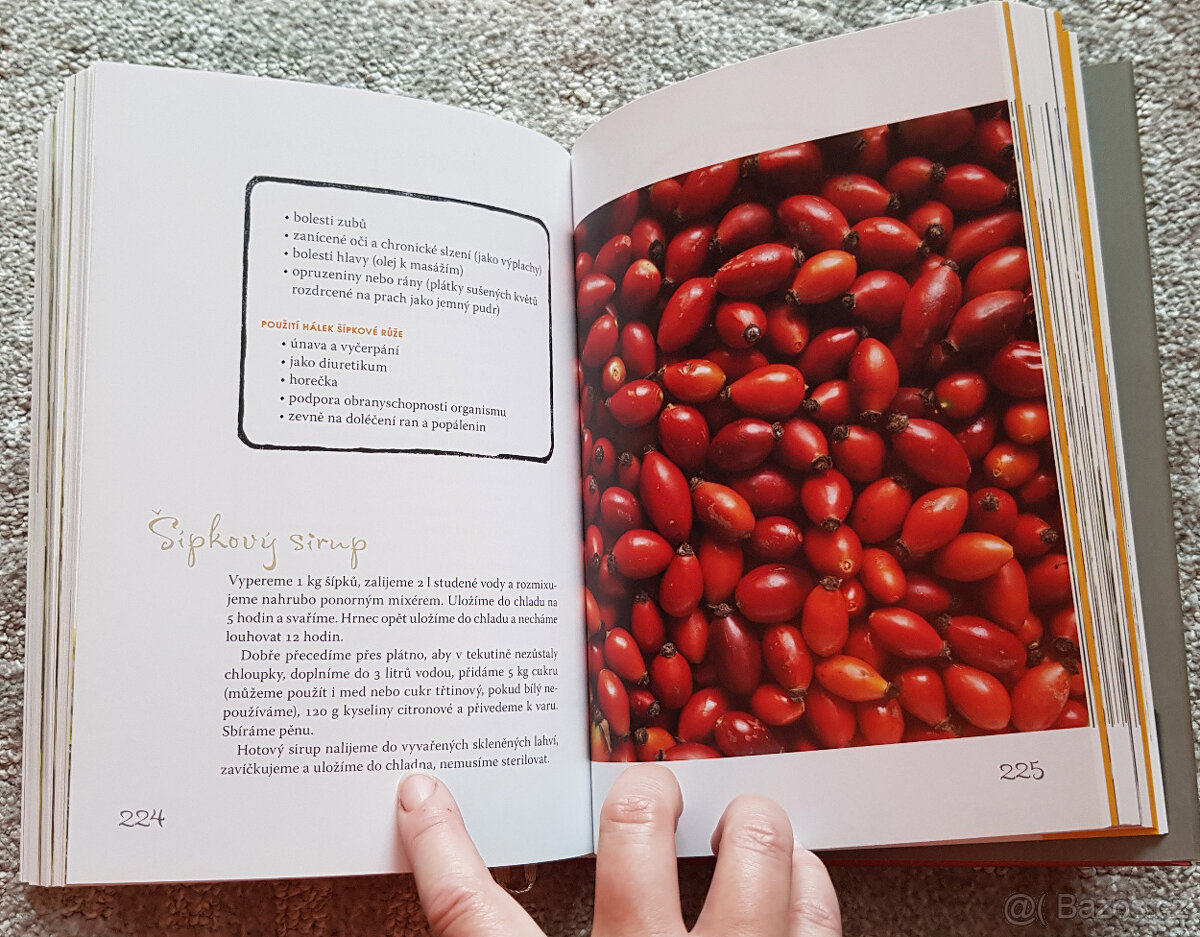 • bolesti zubů
• zanícené oči a chronické slzení (jako výplachy)
• bolesti hlavy (olej k masážím)
• opruzeniny nebo rány (plátky sušených květů
rozdrcené na prach jako jemný pudr)
POUŽITÍ HÁLEK ŠÍPKOVÉ RŮŽE
• únava a vyčerpání
• jako diuretikum
• horečka
• podpora obranyschopnosti organismu
• zevně na doléčení ran a popálenin
Šípkový sirup
Vypereme 1 kg šípků, zalijeme 2 l studené vody a rozmixu-
jeme nahrubo ponorným mixérem. Uložíme do chladu na
5 hodin a svaříme. Hrnec opět uložíme do chladu a necháme
louhovat 12 hodin.
Dobře přecedíme přes plátno, aby v tekutině nezůstaly
chloupky, doplníme do 3 litrů vodou, přidáme 5 kg cukru
(můžeme použít i med nebo cukr třtinový, pokud bílý ne-
používáme), 120 g kyseliny citronové a přivedeme k varu.
Sbíráme pěnu.
Hotový sirup nalijeme do vyvařených skleněných lahví,
zavíčkujeme a uložíme do chladna, nemusíme sterilovat.
224
225
@( Bazos.cz